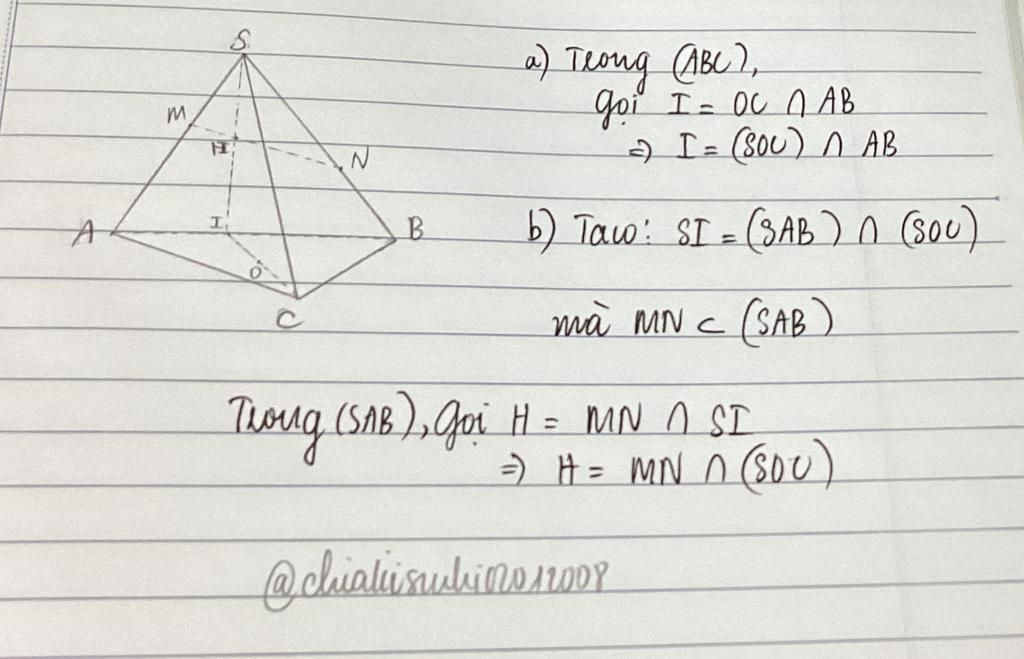 S
M
H
N
A
I
B
O
C
a) Trong (ABC),
gọi I = OC ∩ AB
⇒ I = (SOC) ∩ AB
b) Ta có: SI = (SAB) ∩ (SOC)
mà MN ⊂ (SAB)
Trong (SAB), gọi H = MN ∩ SI
⇒ H = MN ∩ (SOC)